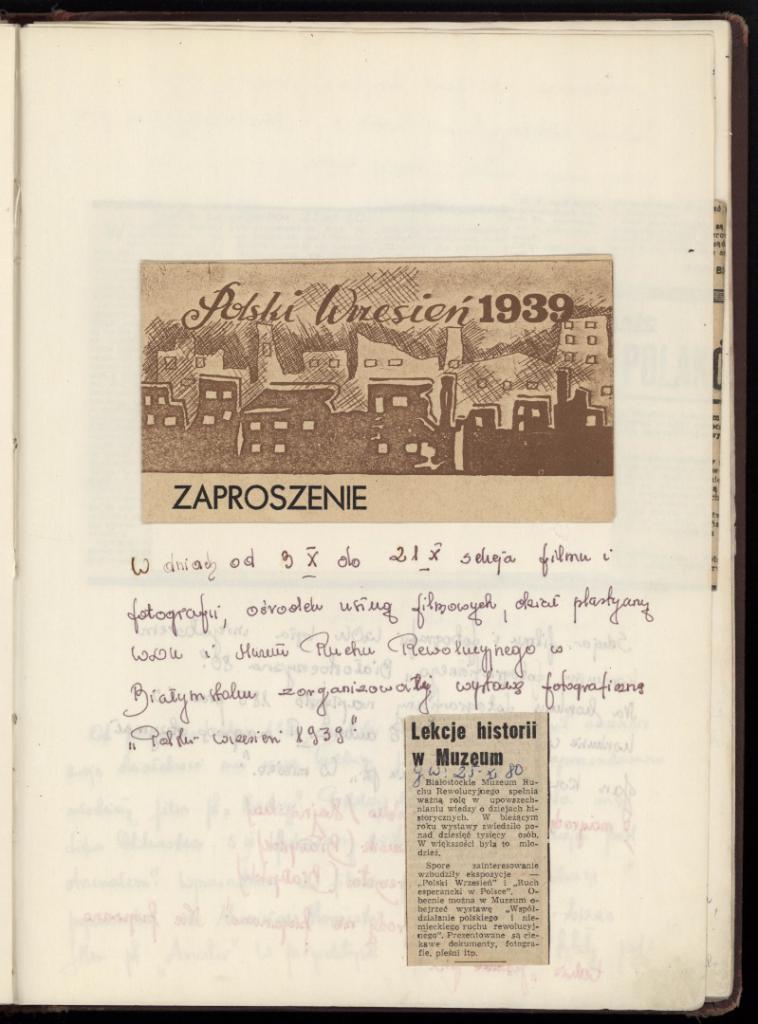 Polski Wrzesień 1939
ZAPROSZENIE
W dniach od 9 X do 21 X sekcja filmu i
fotografii, ośrodek usług filmowych, dział plastyczny
WDK i Muzeum Ruchu Rewolucyjnego w
Białymstoku zorganizowały wystawę fotograficzną
"Polski wrzesień 1939".
Lekcje historii
w Muzeum
25 XI 80
Białostockie Muzeum Ru-
chu Rewolucyjnego spełnia
ważną rolę w upowszech-
nianiu wiedzy o dziejach hi-
storycznych. W bieżącym
roku wystawy zwiedziło po-
nad dziesięć tysięcy osób.
W większości była to mło-
dzież.
Spore zainteresowanie
wzbudziły ekspozycje —
„Polski Wrzesień" i „Ruch
esperancki w Polsce". O-
becnie można w Muzeum o-
bejrzeć wystawę „Współ-
działanie polskiego i nie-
mieckiego ruchu rewolucyj-
nego". Prezentowane są cie-
kawe dokumenty, fotogra-
fie, pieśni itp.